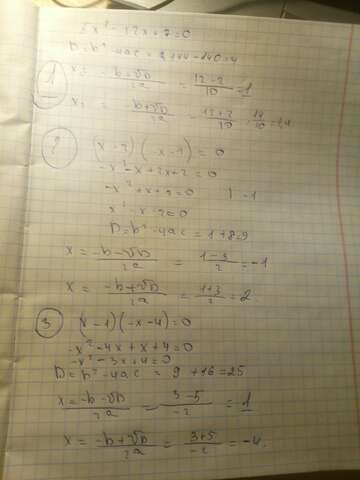 5x² - 12x + 7 = 0
D = b² - 4ac = 144 - 140 = 4
1 x = -b - √D / 2a = 12 - 2 / 10 = 1
x = -b + √D / 2a = 12 + 2 / 10 = 14 / 10 = 1,4
2 (x - 2) (-x - 1) = 0
-x² - x + 2x + 2 = 0
-x² + x + 2 = 0 | · -1
x² - x - 2 = 0
D = b² - 4ac = 1 + 8 = 9
x = -b - √D / 2a = 1 - 3 / 2 = -1
x = -b + √D / 2a = 1 + 3 / 2 = 2
3 (x - 1) (-x - 4) = 0
-x² - 4x + x + 4 = 0
-x² - 3x + 4 = 0
D = b² - 4ac = 9 + 16 = 25
x = -b - √D / 2a = 3 - 5 / -2 = 1
x = -b + √D / 2a = 3 + 5 / -2 = -4.